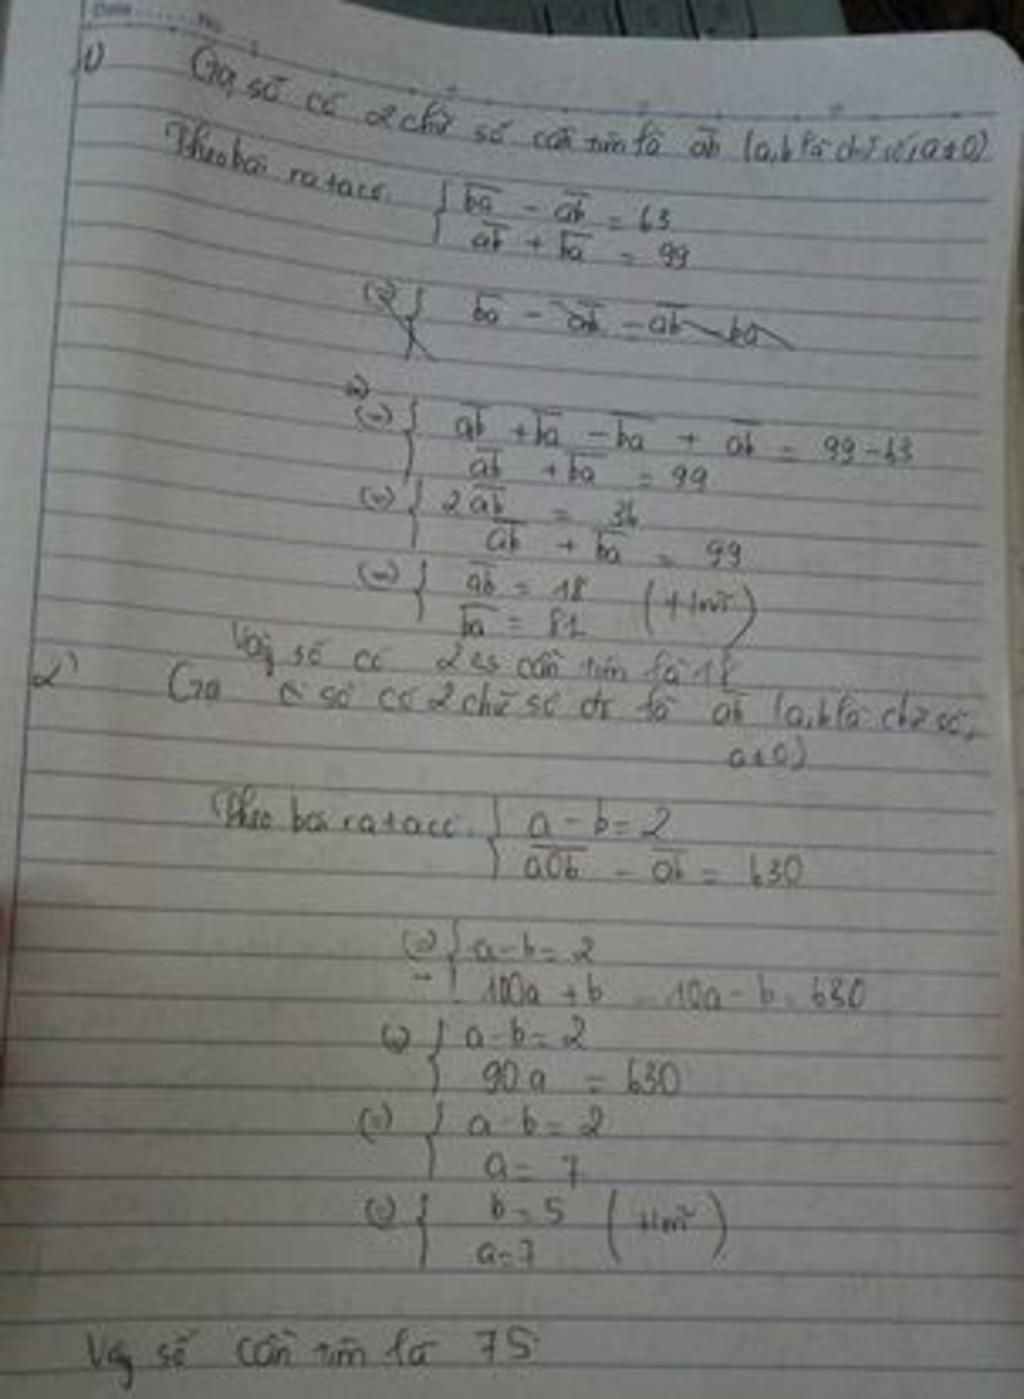 Date ........ No.
1) Gọi số có 2 chữ số cần tìm là ab (a,b là chữ số, a≠0)
Theo bài ra ta có
{ ba - ab = 63
ab + ba = 99
(=) { ba - ab - ab - ba
(=) { ab + ba - ba + ab = 99 - 63
ab + ba = 99
(=) { 2ab = 36
ab + ba = 99
(=) { ab = 18 (tmđk)
ba = 81
Vậy số có 2cs cần tìm là 18
2) Gọi số có 2 chữ số là ab (a,b là chữ số,
a≠0)
Theo bài ra ta có { a - b = 2
a0b - ab = 630
(=) { a - b = 2
100a + b - 10a - b = 630
(=) { a - b = 2
90a = 630
(=) { a - b = 2
a = 7
(=) { b = 5
a = 7
Vậy số cần tìm là 75